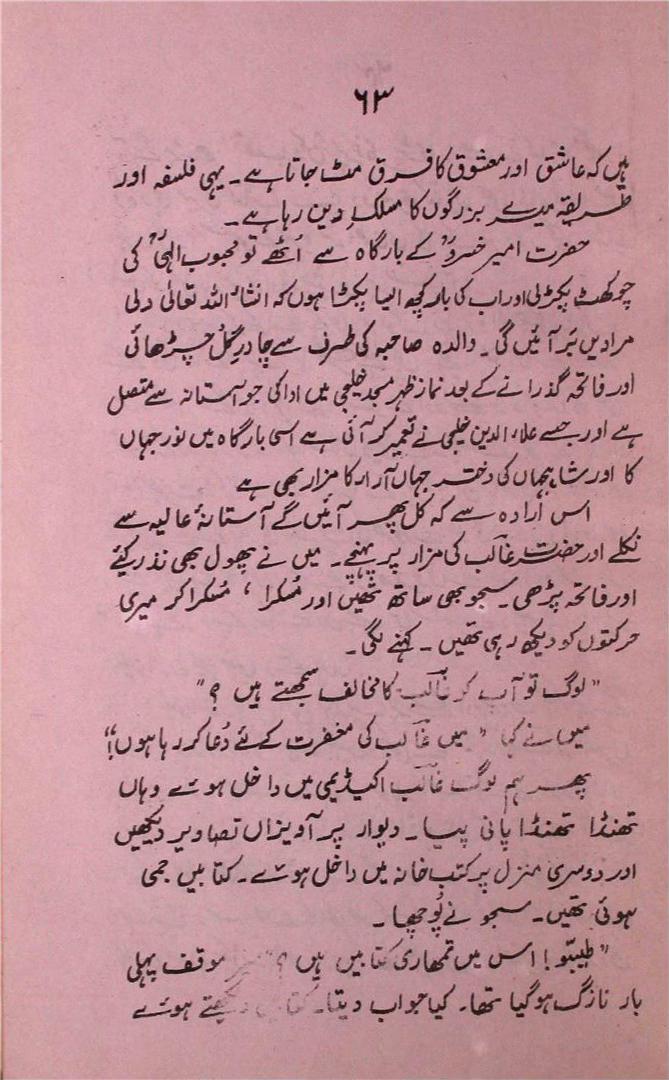 ۶۳
ہیں کہ عاشق اور معشوق کا فرق مٹ جاتا ہے۔ یہی فلسفہ اور
طریقہ میرے بزرگوں کا مسلکِ دین رہا ہے۔
حضرت امیر خسروؒ کے بارگاہ سے اُٹھے تو محبوب الٰہیؒ کی
چوکھٹ پکڑلی اور اب کی بار کچھ ایسا پکڑا ہوں کہ انشاء اللہ تعالیٰ دلی
مرادیں بَر آئیں گی۔ والدہ صاحبہ کی طرف سے چادرِ گُل چڑھائی
اور فاتحہ گذرانے کے بعد نماز ظہر مسجد خلیجی میں ادا کی جو آستانہ سے متصل
ہے اور جسے علاء الدین خلجی نے تعمیر کرائی ہے اسی بارگاہ میں نور جہاں
کا اور شاہجہاں کی دختر جہاں آراء کا مزار بھی ہے
اس ارادہ سے کہ کل پھر آئیں گے آستانۂ عالیہ سے
نکلے اور حضرت غالب کی مزار پر پہنچے۔ میں نے پھول بھی نذر کیئے
اور فاتحہ پڑھی۔ سجو بھی ساتھ تھیں اور مُسکرا ، مُسکرا کر میری
حرکتوں کو دیکھ رہی تھیں۔ کہنے لگی۔
"لوگ تو آپ کو غالب کا مخالف سمجھتے ہیں ؟"
میں نے کہا "میں غالب کی مغفرت کے لئے دُعا کر رہا ہوں!"
پھر ہم لوگ غالب اکیڈیمی میں داخل ہوئے وہاں
تھنڈا تھنڈا پانی پیا۔ دیوار پر آویزاں تصاویر دیکھیں
اور دوسری منزل پر کتب خانہ میں داخل ہوئے۔ کتابیں جمی
ہوئی تھیں۔ سجو نے پُوچھا۔
"طیبّو! اس میں تمھاری کتابیں ہیں ؟" موقف پہلی
بار نازک ہو گیا تھا۔ کیا جواب دیتا۔ کتابیں دیکھتے ہوئے